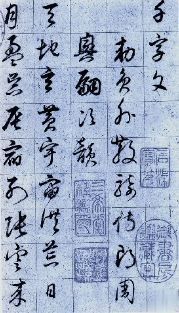 千字文
勅員外散騎侍郎周
興嗣次韻
天地玄黄宇宙洪荒日
月盈昃辰宿列張寒来